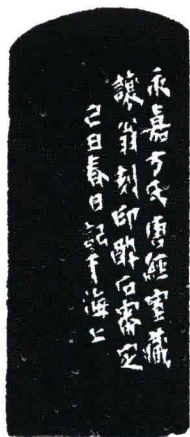 永嘉方氏傳經室藏
讓翁刻印醉石審定
己丑春日記于海上